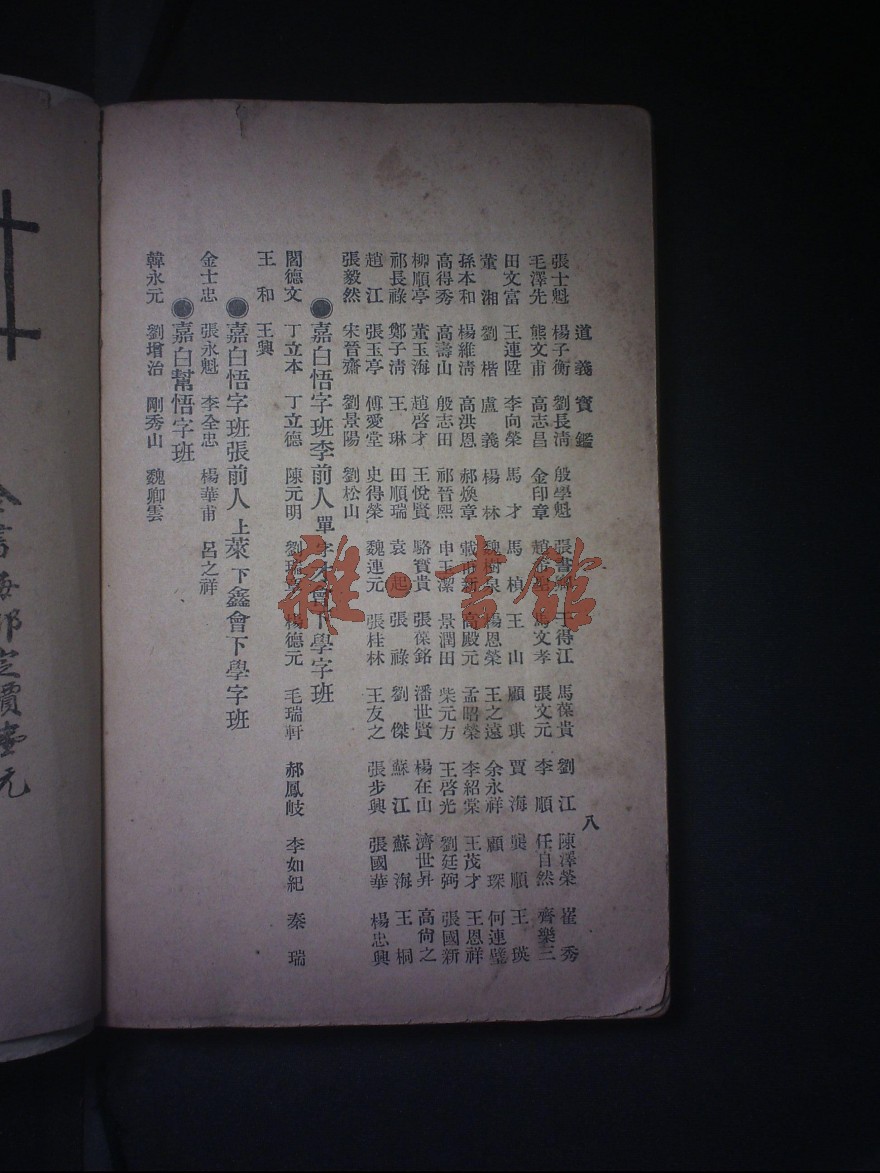 道義寶鑑 八
張士魁 楊子衡 劉長清 殷學魁 張書 王得江 馬葆貴 劉江 陳澤榮 崔秀
毛澤先 熊文甫 高志昌 金印章 文孝 張文元 李順 任自然 齊樂三
田文富 王連陞 李向榮 馬才 馬楨 王山 顧琪 賈海 龔順 王瑛
董湘 劉楷 盧義 楊林 魏樹泉 楊恩榮 王之遠 余永祥 顧琛 何連璧
孫本和 楊維清 高洪恩 郝煥章 新 高殿元 孟昭榮 李紹棠 王茂才 王恩祥
高得秀 高壽山 殷志田 祁晉熙 申玉潔 景潤田 柴元方 王啓光 劉廷弼 張國新
柳順亭 董玉海 趙啓才 王悅賢 駱寶貴 張葆銘 潘世賢 楊在山 濟世昇 高尙之
祁長祿 鄭子清 王琳 田順瑞 袁起 張祿 劉傑 蘇江 蘇海 王桐
趙江 張玉亭 傅愛堂 史得榮 魏連元 張桂林 王友之 張步興 張國華 楊忠興
張毅然 宋晉齋 劉景陽 劉松山
●嘉白悟字班李前人單字 會下學字班
閻德文 丁立本 丁立德 陳元明 劉瑞 楊德元 毛瑞軒 郝鳳岐 李如紀 秦瑞
王和 王興
●嘉白悟字班張前人上萊下鑫會下學字班
金士忠 張永魁 李全忠 楊華甫 呂之祥
●嘉白幫悟字班
韓永元 劉增治 剛秀山 魏卿雲
雜·書館
定價壹元